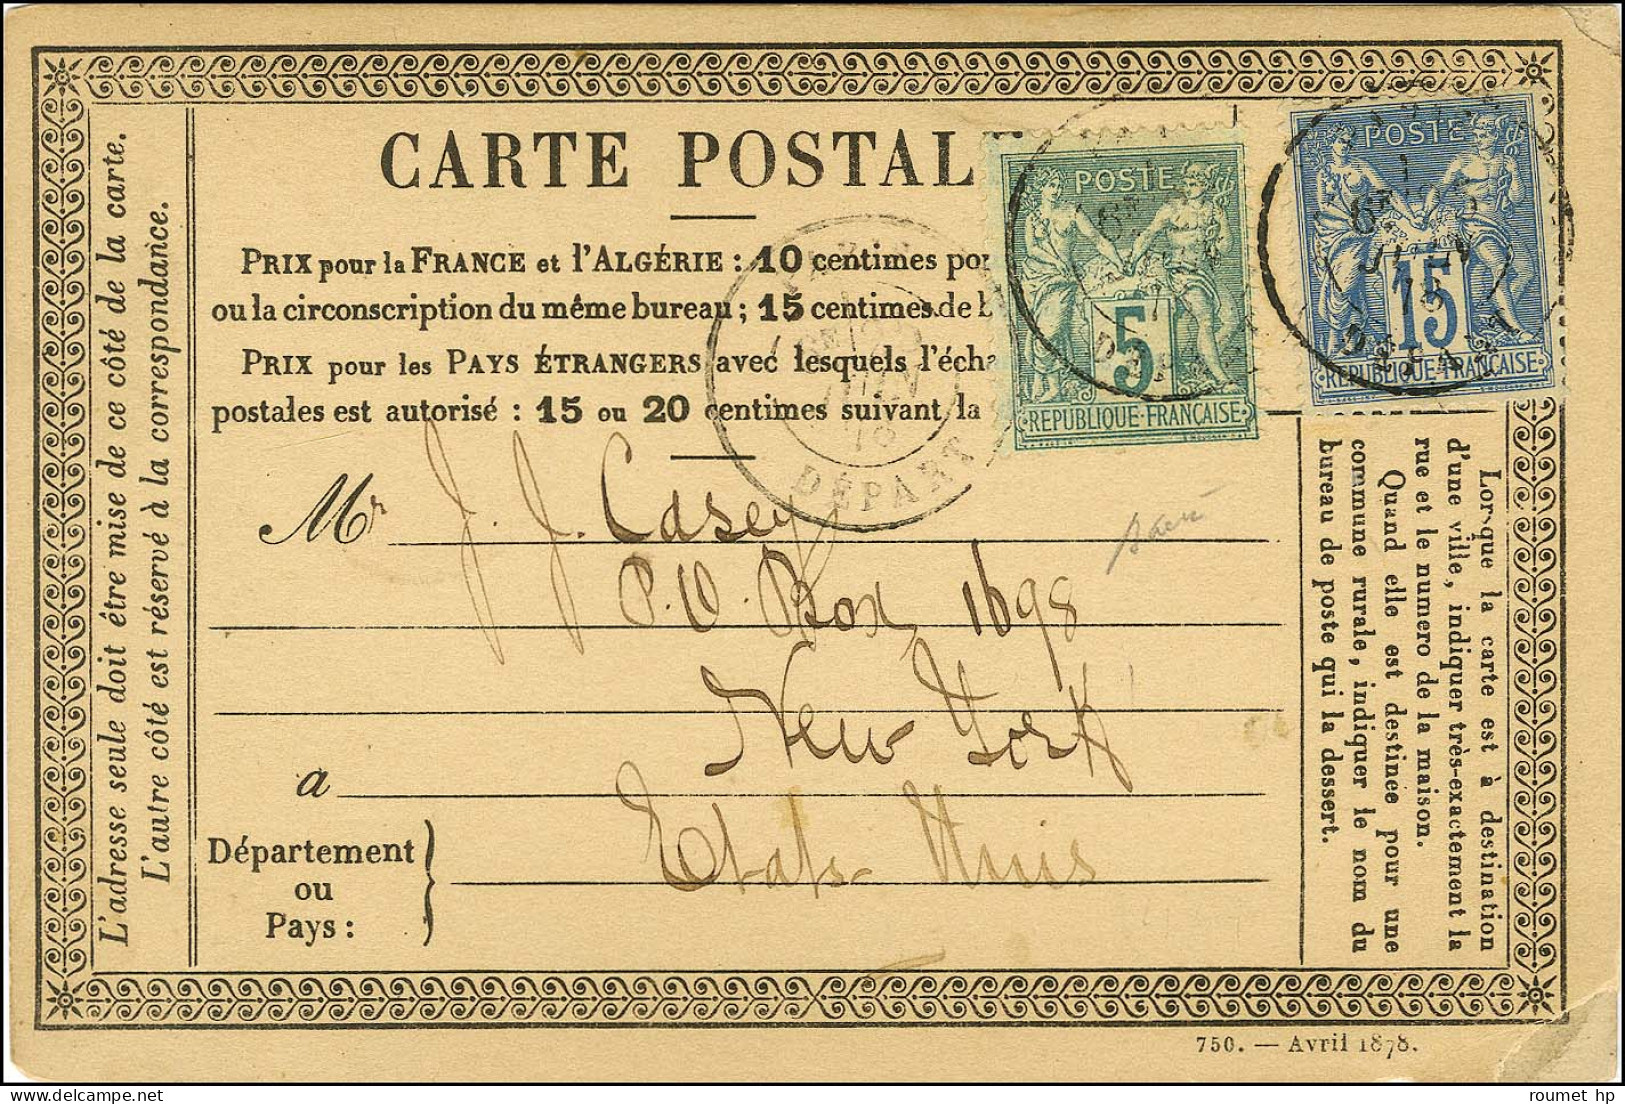 CARTE POSTAL
PRIX pour la FRANCE et l'ALGÉRIE : 10 centimes
ou la circonscription du même bureau ; 15 centimes de
PRIX pour les PAYS ÉTRANGERS avec lesquels l'écha
postales est autorisé : 15 ou 20 centimes suivant la
POSTE
5
REPUBLIQUE FRANÇAISE
POSTE
15
REPUBLIQUE FRANÇAISE
6E
JUIN
78
DÉPART
JUIN
78
DÉPART
Mr J. J. Casey
P.O. Box 1698
New York
à
Etats-Unis
Département
ou
Pays :
L'adresse seule doit être mise de ce côté de la carte.
L'autre côté est réservé à la correspondance.
Lorsque la carte est à destination
d'une ville, indiquer très-exactement la
rue et le numéro de la maison.
Quand elle est destinée pour une
commune rurale, indiquer le nom du
bureau de poste qui la dessert.
750. — Avril 1878.
roumet hp